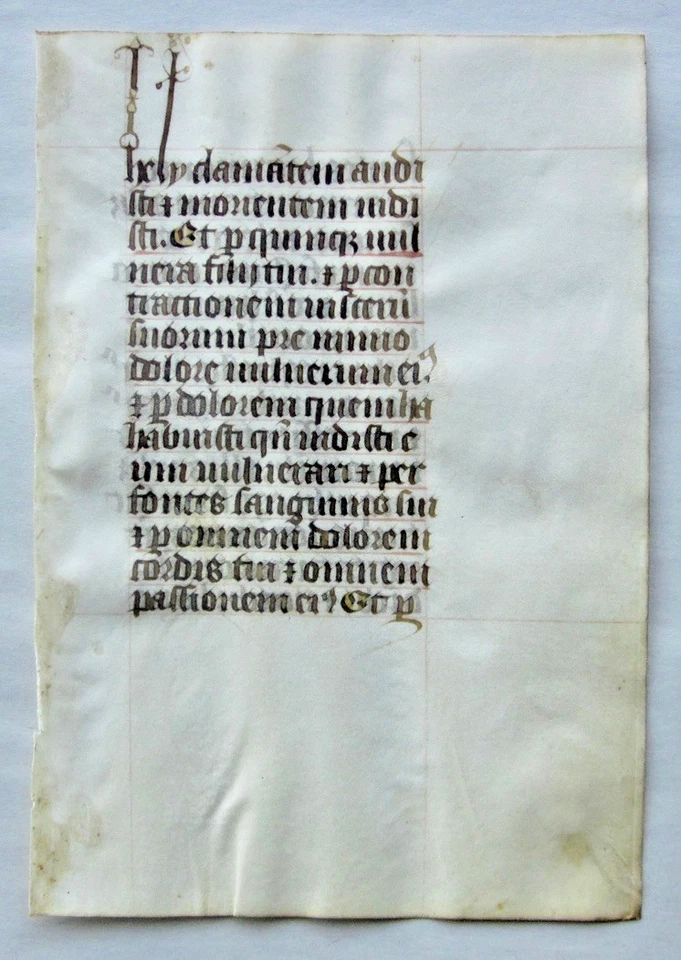 hely clamātem audi
sti ⁊ morientem uidi
sti. Et ꝑ quinqꝫ uul
nera filij tui. ⁊ ꝑ con
tractionem uisceruꝫ
suorum pre nimio
dolore uulnerum eiꝰ.
⁊ ꝑ dolorem quem ha
habuisti qn̄ uidisti e
um uulnerari ⁊ per
fontes sanguinis sui
⁊ ꝑ omnem dolorem
cordis tui ⁊ omnem
passionem eiꝰ Et ꝑ